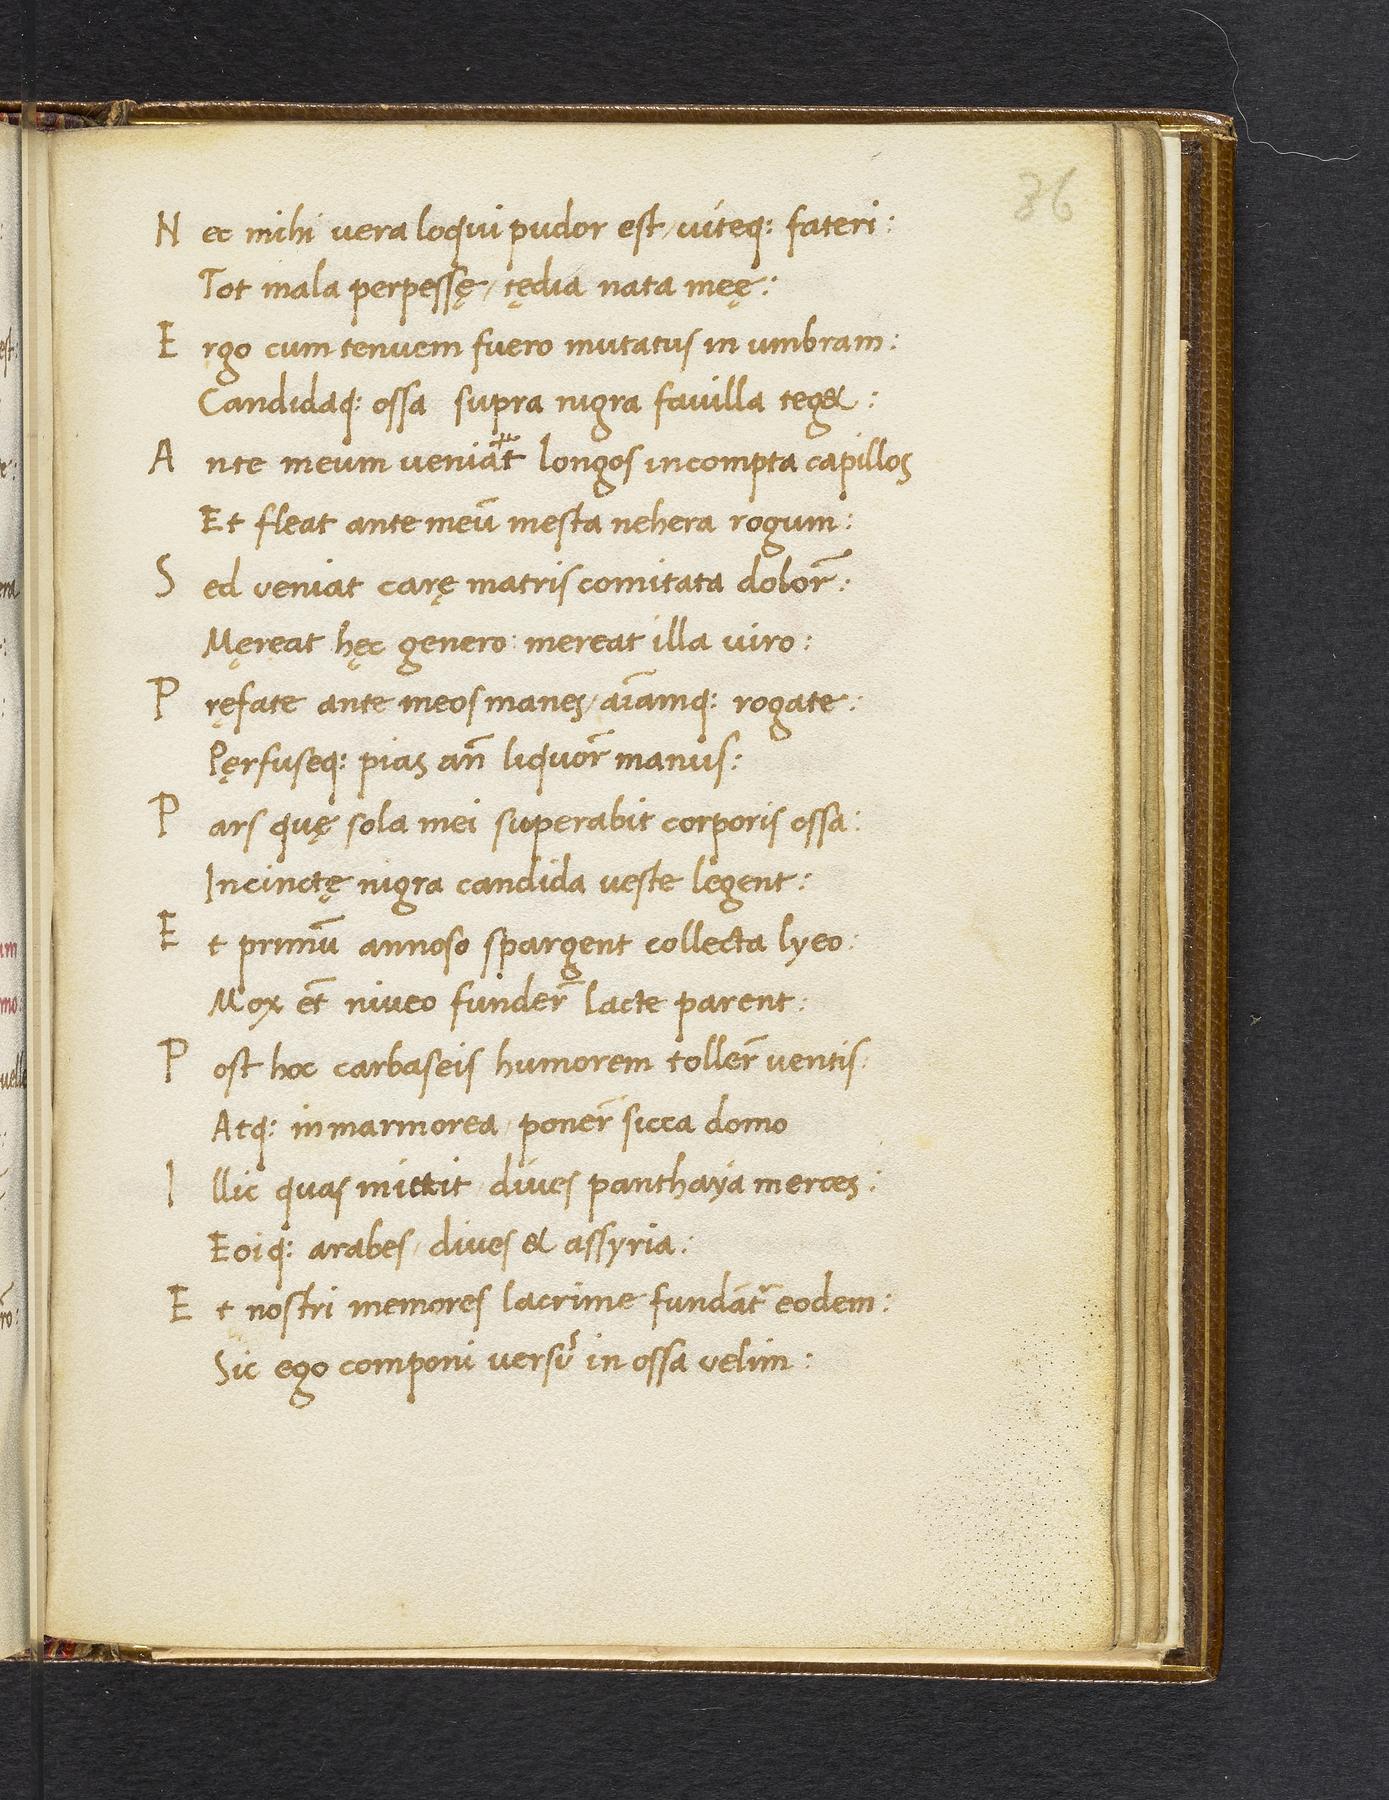 86
N ec mihi vera loqui pudor est / viteq: fateri :
Tot mala perpessę / tędia nata meę :
E rgo cum tenuem fuero mutatus in umbram :
Candidaq: ossa supra nigra fauilla teg& :
A nte meum veniat longos incompta capillos
Et fleat ante meū mesta nehera rogum :
S ed veniat carę matris comitata dolor̄ :
Męreat hęc genero : mereat illa uiro :
P ręfate ante meos manes / aīamq: rogate :
Pęrfuseq: pias an̄ liquor̄ manus :
P ars quę sola mei superabit corporis ossa :
Incinctę nigra candida ueste legent :
E t primū annoso spargent collecta lyeo :
Mox et̄ niueo funder̄ lacte parent :
P ost hoc carbaseis humorem toller̄ ventis :
Atq: in marmorea / poner̄ sicca domo
I llic quas mittit / diues panthaya merces :
Eoiq: arabes / diues & assyria :
E t nostri memores lacrime fundāt eodem :
Sic ego componi versꝰ in ossa velim :